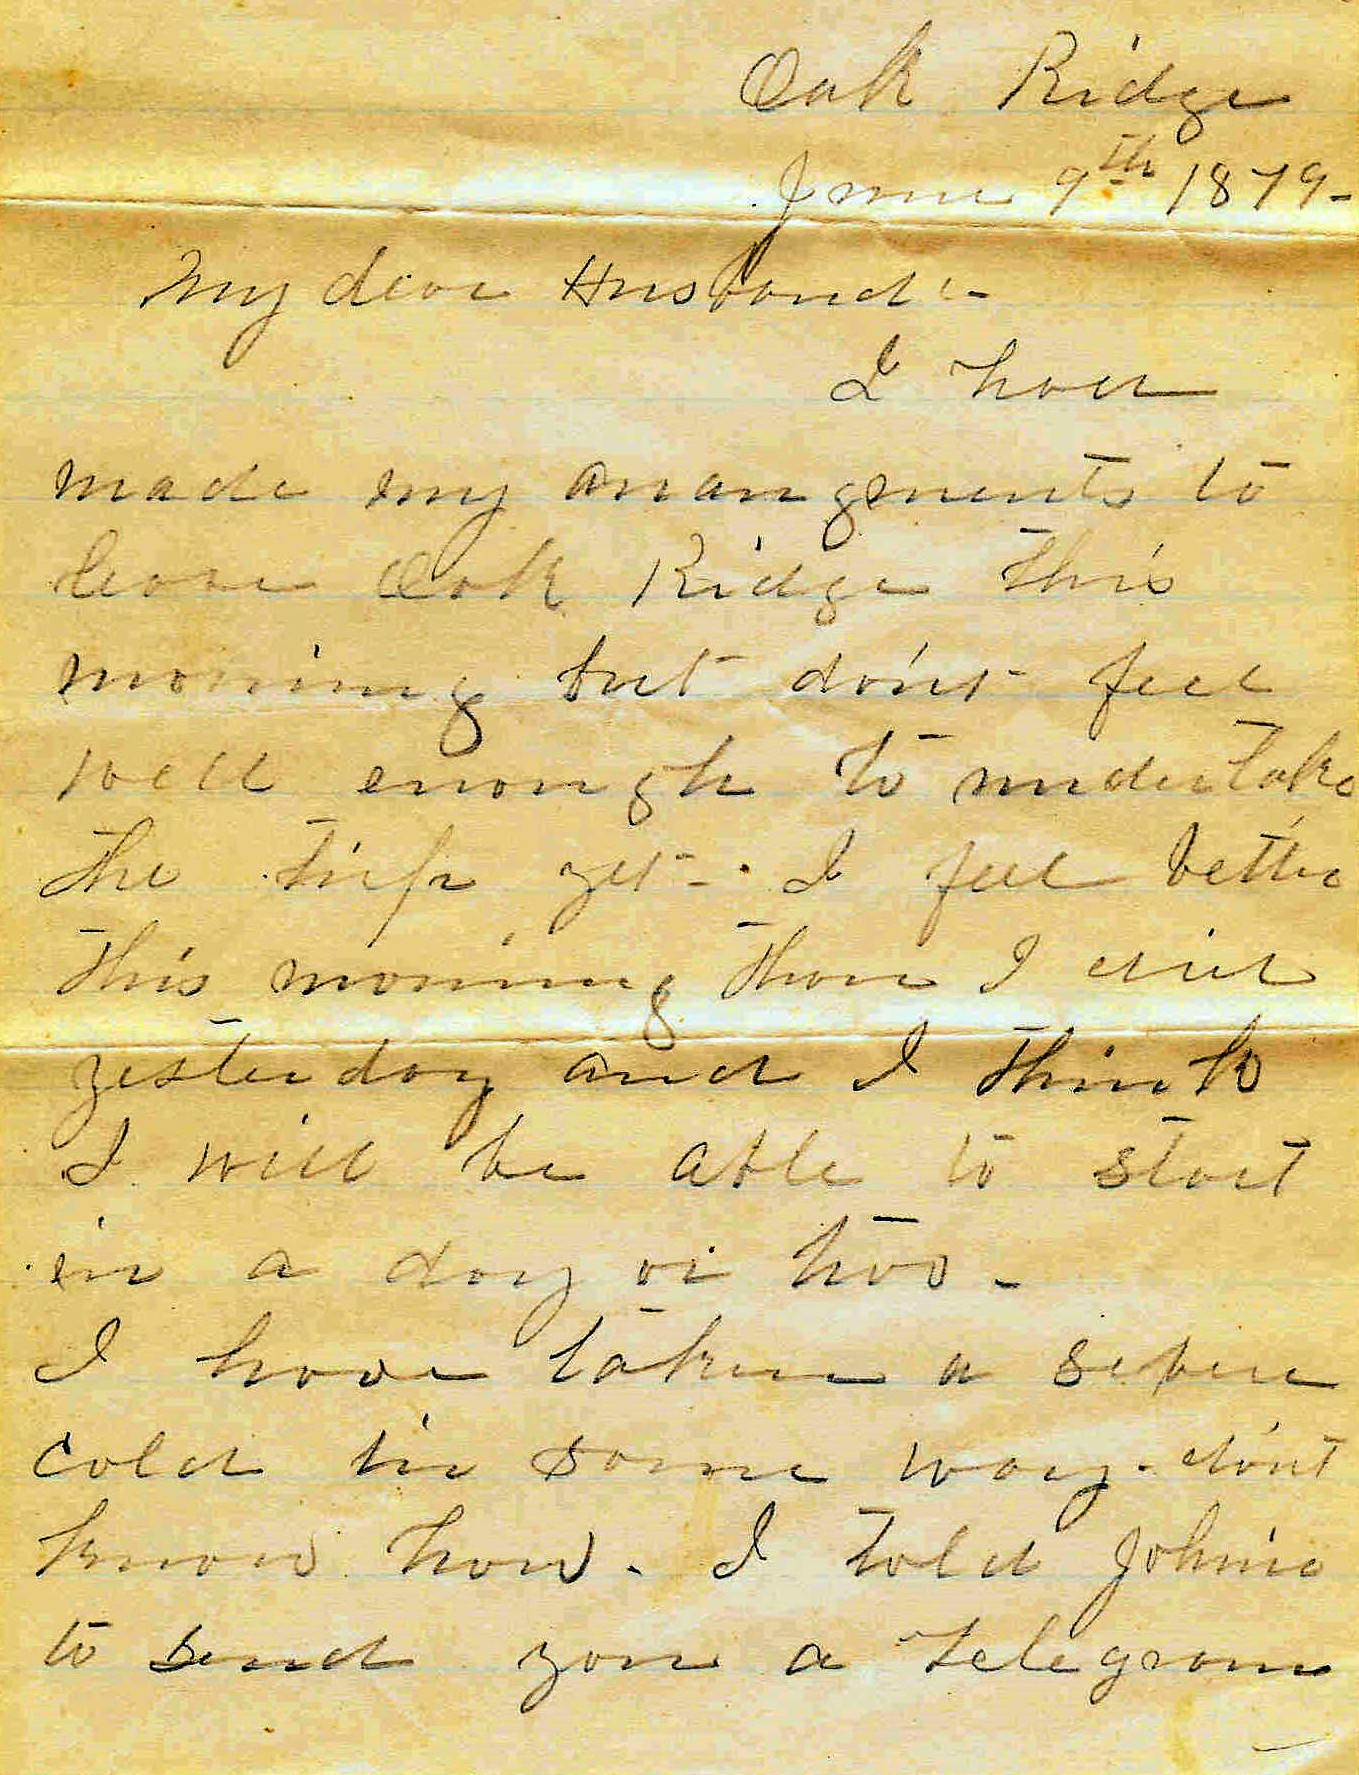 Oak Ridge
June 9th 1879-
My dear Husband:-
I have
made my arrangments to
leave Oak Ridge this
morning but don't feel
well enough to undertake
the trip yet-. I feel better
this morning than I did
yesterday and I think
I will be able to start
in a day or two-
I have taken a severe
cold in some way- don't
know how. I told Johnie
to send you a telegram